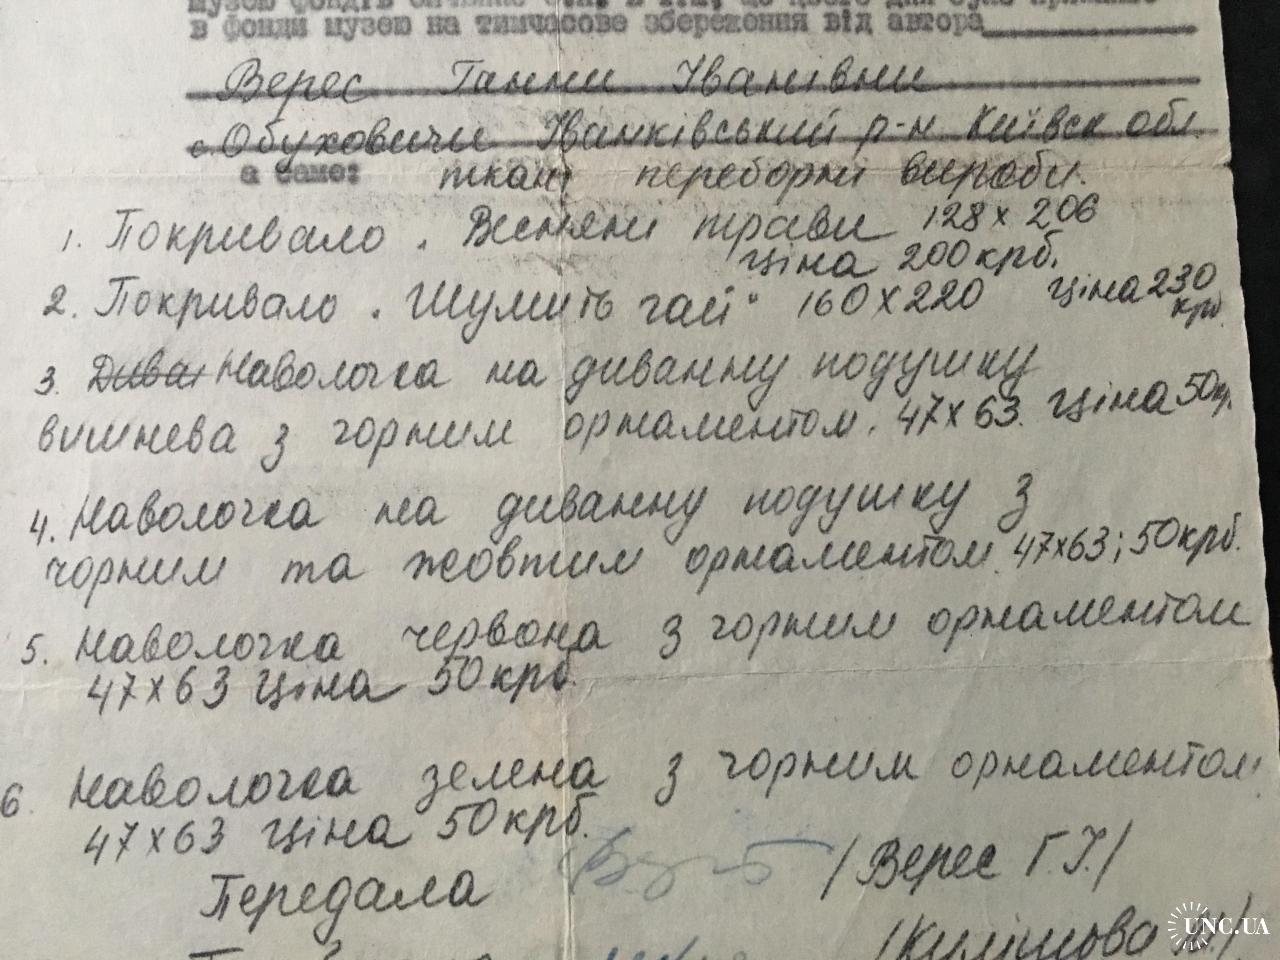 в фонди музею на тимчасове збереження від автора
Верес Ганни Іванівни
с. Обуховичи Іванківський р-н Київск обл.
а саме: ткані переборні вироби.
1. Покривало „Весняні трави 128 х 206
ціна 200 крб.
2. Покривало „Шумить гай" 160 х 220 ціна 230
крб
3. Диван Наволочка на диванну подушку
вишнева з чорним орнаментом. 47 х 63. ціна 50кр.
4. Наволочка на диванну подушку з
чорним та жовтим орнаментом 47х63; 50 крб.
5. Наволочка червона з чорним орнаментом
47 х 63 ціна 50 крб.
6. Наволочка зелена з чорним орнаментом
47 х 63 ціна 50 крб.
Передала /Верес Г.І./
UNC.UA